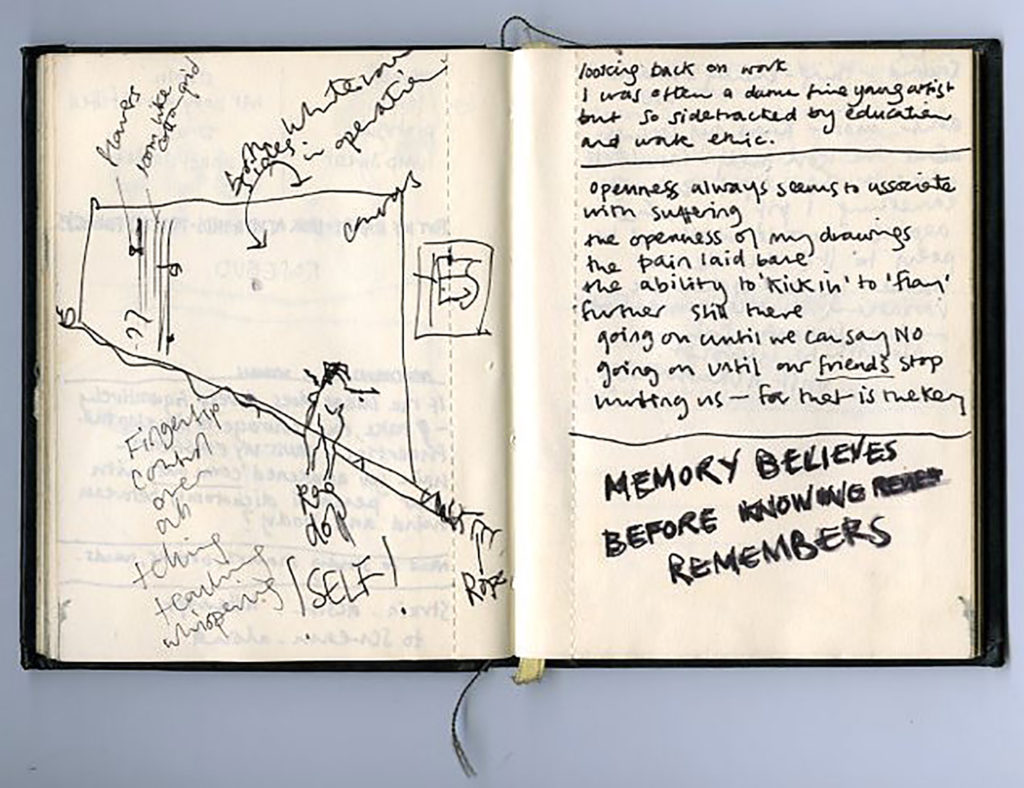 some like
in operation
canvas
Fingertip
control
over
teaching
whispering
RAG
doll
/SELF/
Rope
looking back on work
I was often a damn fine young artist
but so sidetracked by education
and work ethic.
openness always seems to associate
with suffering
the openness of my drawings
the pain laid bare
the ability to 'kick in' to
further still there
going on until we can say NO
going on until our friends stop
hurting us – for that is the key
MEMORY BELIEVES
BEFORE KNOWING
REMEMBERS